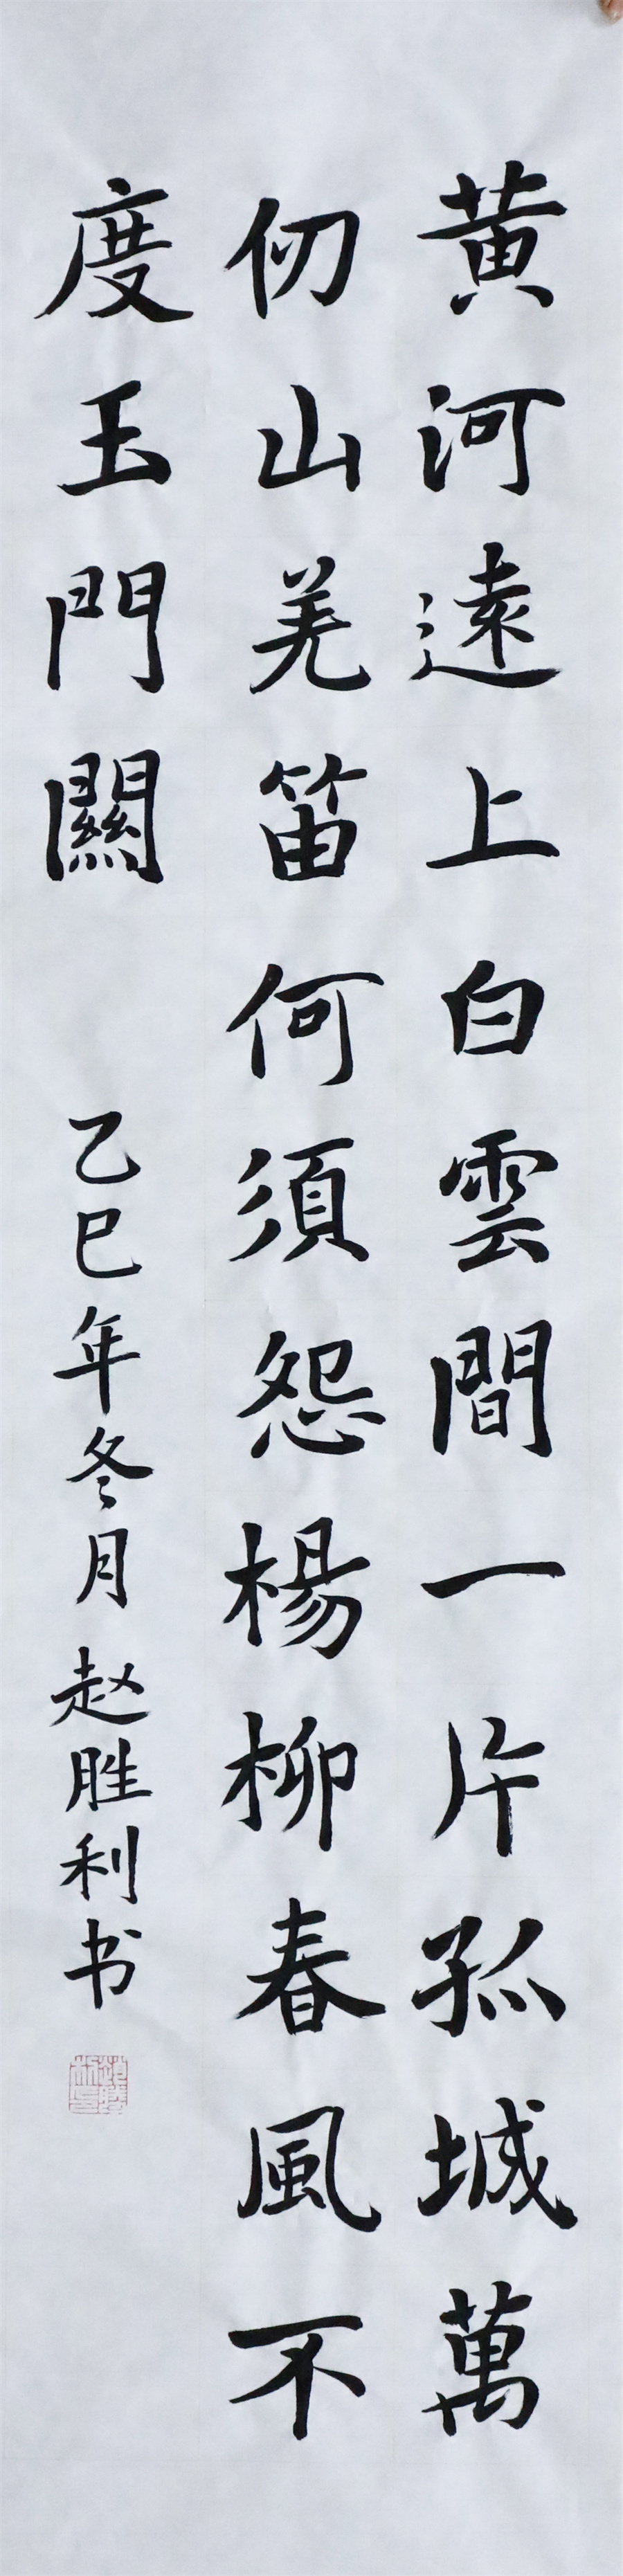 黄河遠上白雲間一片孤城萬
仞山羌笛何須怨楊柳春風不
度玉門關
乙巳年冬月赵胜利书